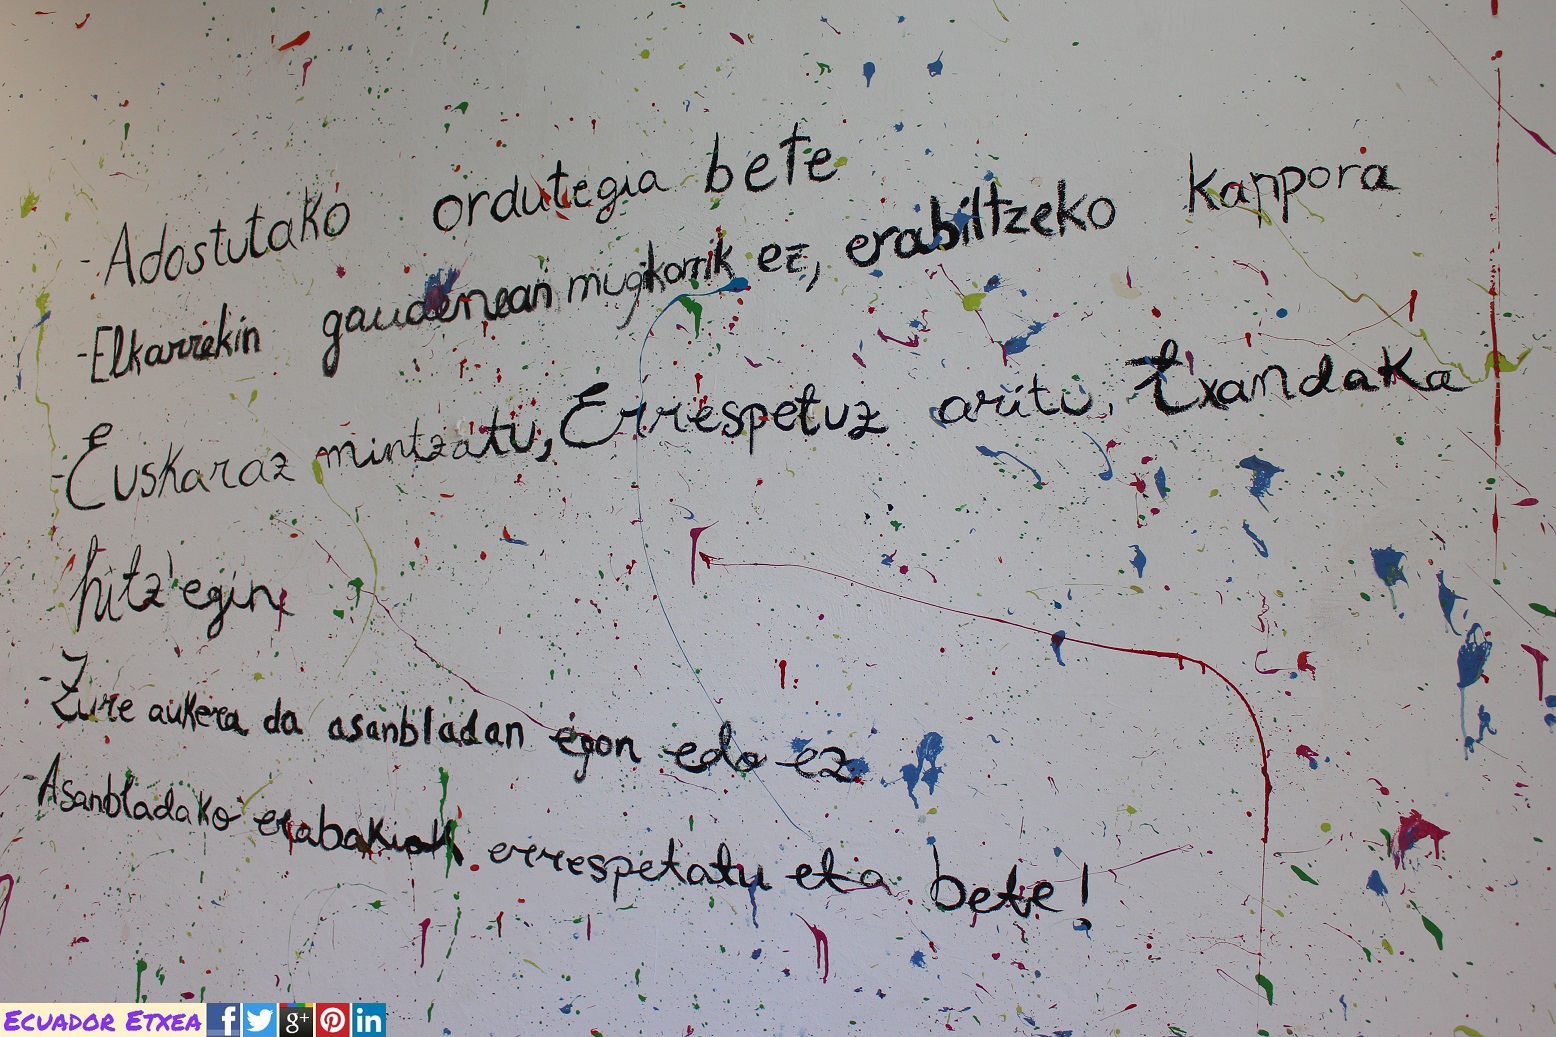 - Adostutako ordutegia bete
- Elkarrekin gaudenean mugikorrik ez, erabiltzeko kanpora
- Euskaraz mintzatu, Errespetuz aritu, txandaka
hitz egin
- Zure aukera da asanbladan egon edo ez
- Asanbladako erabakiak errespetatu eta bete!
ECUADOR ETXEA f g+ in